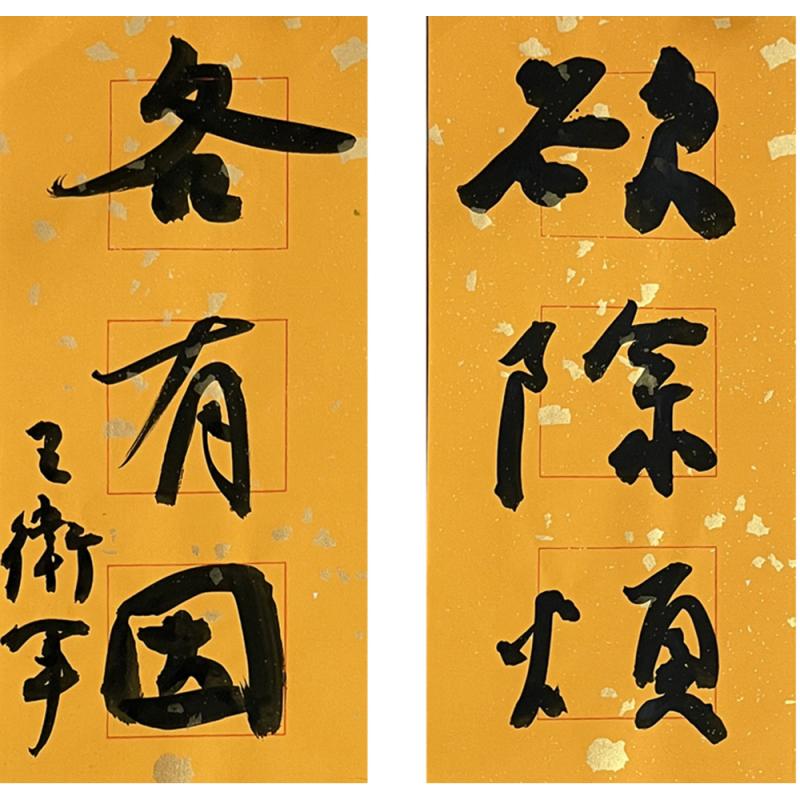 欲除煩
各有因
王衛军